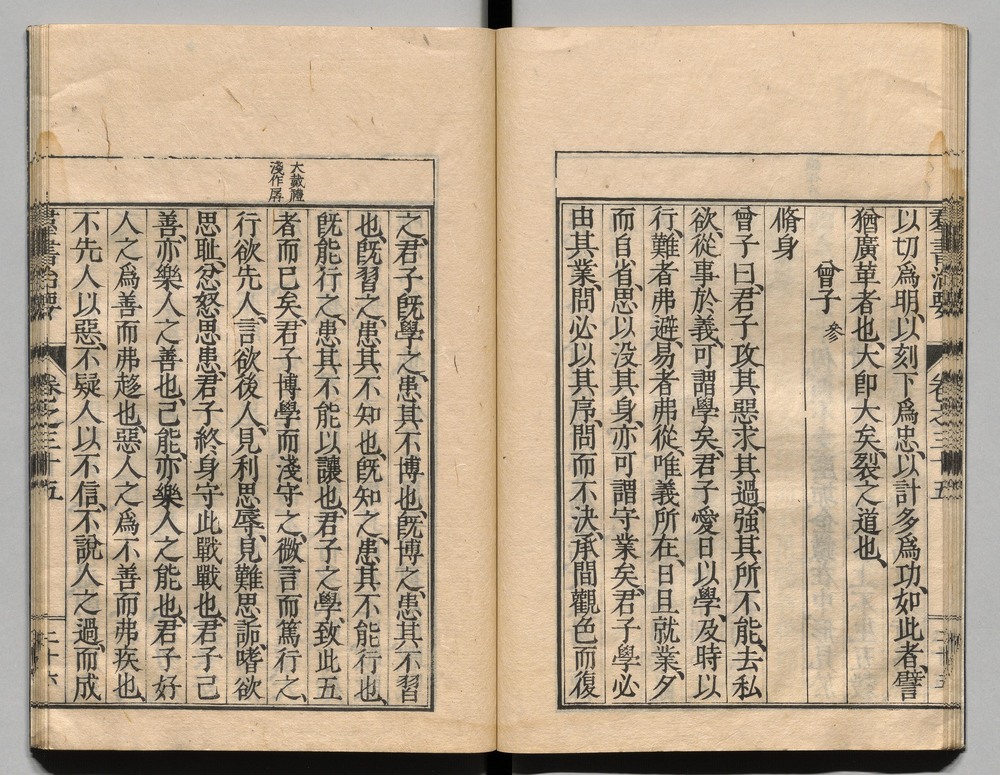 以切爲明、以刻下爲忠、以計多爲功、如此者、譬
猶廣革者也、大卽大矣、裂之道也、
曾子 參
脩身
曾子曰、君子攻其惡、求其過、強其所不能、去私
欲、從事於義、可謂學矣、君子愛日以學、及時以
行、難者弗避、易者弗從、唯義所在、日旦就業、夕
而自省、思以没其身、亦可謂守業矣、君子學必
由其業、問必以其序、問而不決、承間觀色而復
群書治要 卷之三十五 二十五
之、君子旣學之、患其不博也、旣博之、患其不習
也、旣習之、患其不知也、旣知之、患其不能行也、
旣能行之、患其不能以讓也、君子之學、致此五
者而已矣、君子博學而淺守之、微言而篤行之、
行欲先人、言欲後人、見利思辱、見難思詬、嗜欲
思耻、忿怒思患、君子終身守此戰戰也、君子己
善、亦樂人之善也、己能、亦樂人之能也、君子好
人之爲善而弗趍也、惡人之爲不善而弗疾也、
不先人以惡、不疑人以不信、不說人之過、而成
大戴禮
淺作孱
群書治要 卷之三十五 二十六